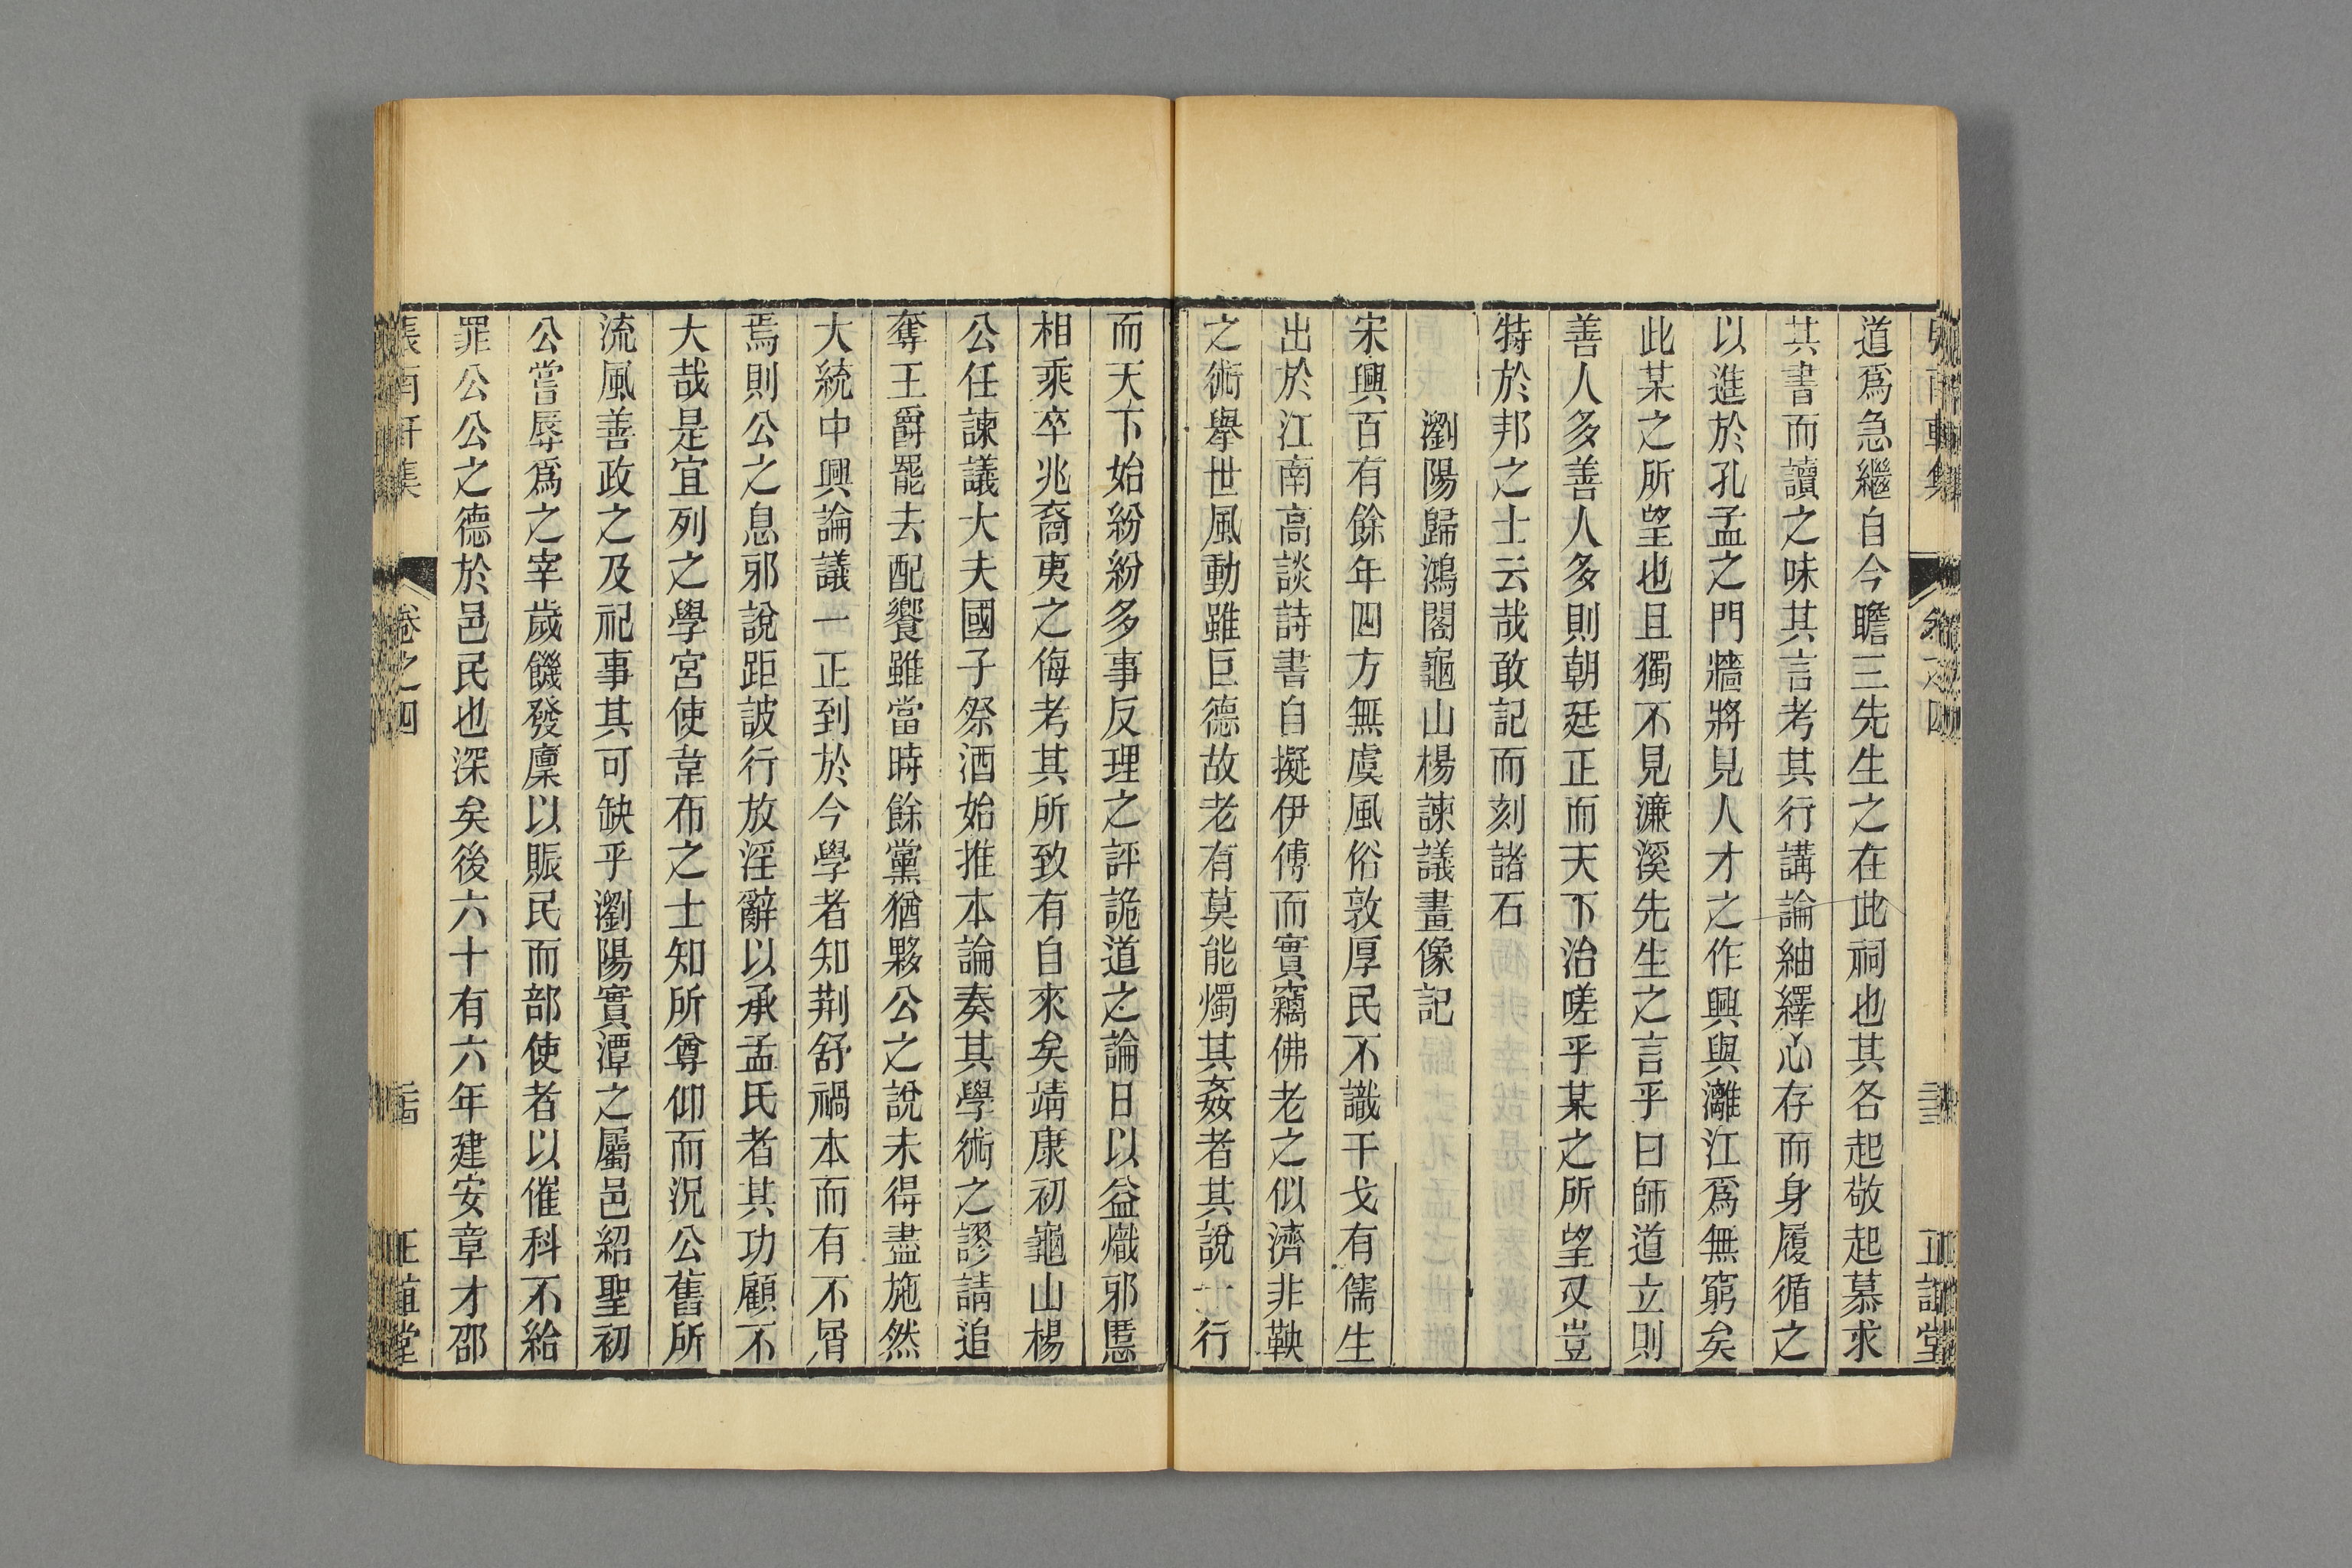 道爲急繼自今瞻三先生之在此祠也其各起敬起慕求
其書而讀之味其言考其行講論紬繹心存而身履循之
以進於孔孟之門牆將見人才之作興與灕江爲無窮矣
此某之所望也且獨不見濂溪先生之言乎曰師道立則
善人多善人多則朝廷正而天下治嗟乎某之所望又豈
特於邦之士云哉敢記而刻諸石
瀏陽歸鴻閣龜山楊諫議畫像記
宋興百有餘年四方無虞風俗敦厚民不識干戈有儒生
出於江南高談詩書自擬伊傅而實竊佛老之似濟非鞅
之術舉世風動雖巨德故老有莫能燭其姦者其說一行
而天下始紛紛多事反理之評詭道之論日以益熾邪慝
相乘卒兆裔夷之侮考其所致有自來矣靖康初龜山楊
公任諫議大夫國子祭酒始推本論奏其學術之謬請追
奪王爵罷去配饗雖當時餘黨猶夥公之說未得盡施然
大統中興論議一正到於今學者知荆舒禍本而有不屑
焉則公之息邪說距詖行放淫辭以承孟氏者其功顧不
大哉是宜列之學宮使韋布之士知所尊仰而況公舊所
流風善政之及祀事其可缺乎瀏陽實潭之屬邑紹聖初
公嘗辱爲之宰歲饑發廩以賑民而部使者以催科不給
罪公公之德於邑民也深矣後六十有六年建安章才邵
張南軒集 卷之四 正誼堂